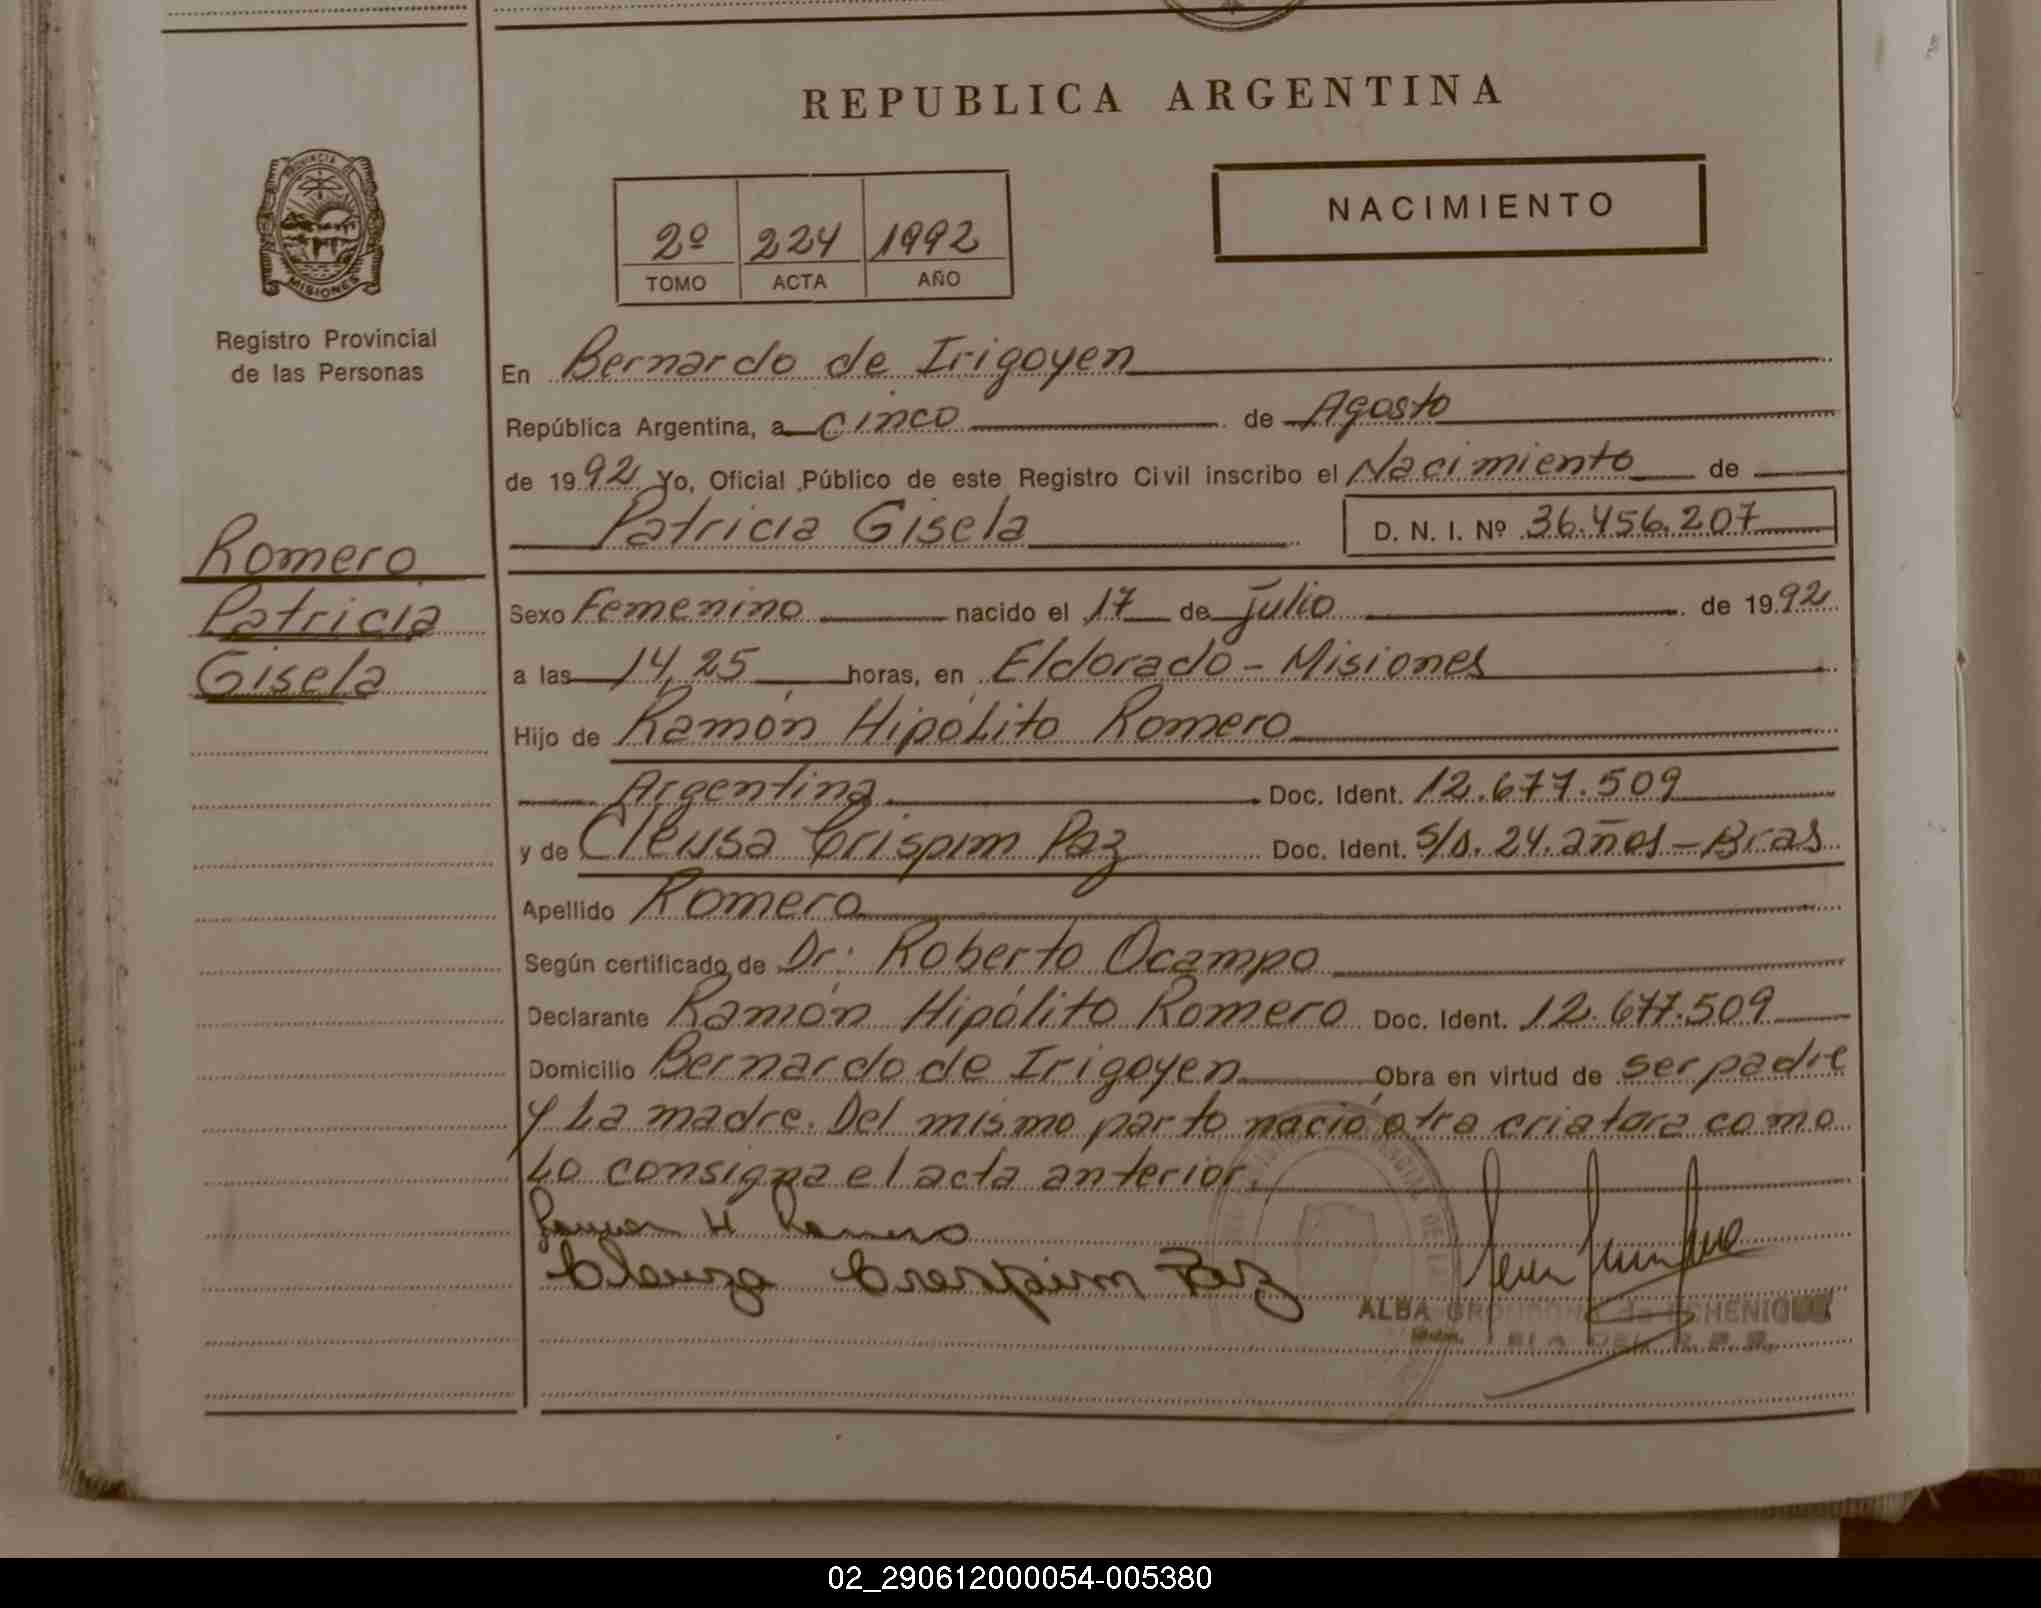 REPUBLICA ARGENTINA
PROVINCIA DE MISIONES
Registro Provincial
de las Personas
NACIMIENTO
2º 224 1992
TOMO ACTA AÑO
En Bernardo de Irigoyen
República Argentina, a cinco de Agosto
de 1992 Yo, Oficial Público de este Registro Civil inscribo el Nacimiento de
Patricia Gisela D. N. I. Nº 36.456.207
Romero
Patricia
Gisela
Sexo Femenino nacido el 17 de julio de 1992
a las 14,25 horas, en Eldorado - Misiones
Hijo de Ramón Hipólito Romero
Argentina Doc. Ident. 12.677.509
y de Cleusa Crispim Paz Doc. Ident. S/D. 24. años - Bras
Apellido Romero
Según certificado de Dr. Roberto Ocampo
Declarante Ramón Hipólito Romero Doc. Ident. 12.677.509
Domicilio Bernardo de Irigoyen Obra en virtud de ser padre
y La madre. Del mismo parto nació otra criatura como
Lo consigna el acta anterior.
Ramon H Romero
Cleuza Crerispim Paz
ALBA GRONDONA de ECHENIQUE
02_290612000054-005380